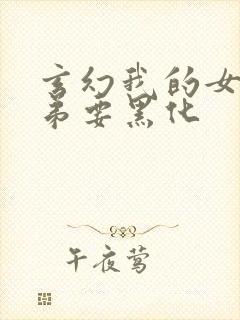 玄幻我的女
弟要黑化
午夜莺